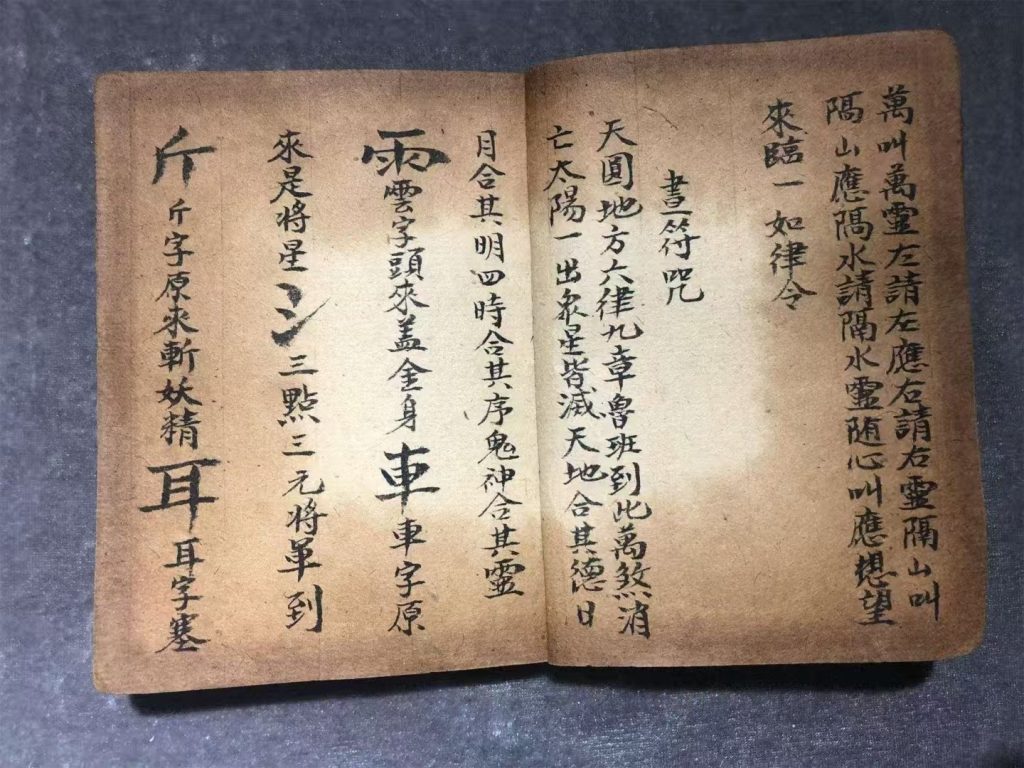 萬叫萬靈左請左應右請右靈隔山叫
隔山應隔水請隔水靈随心叫應想望
來臨一如律令
晝符咒
天圓地方六律九章魯班到此萬煞消
亡太陽一出衆星皆滅天地合其德日
月合其明四時合其序鬼神合其靈
雨雲字頭來盖金身車車字原
來是将星氵三點三元将軍到
斤斤字原來斬妖精耳耳字塞